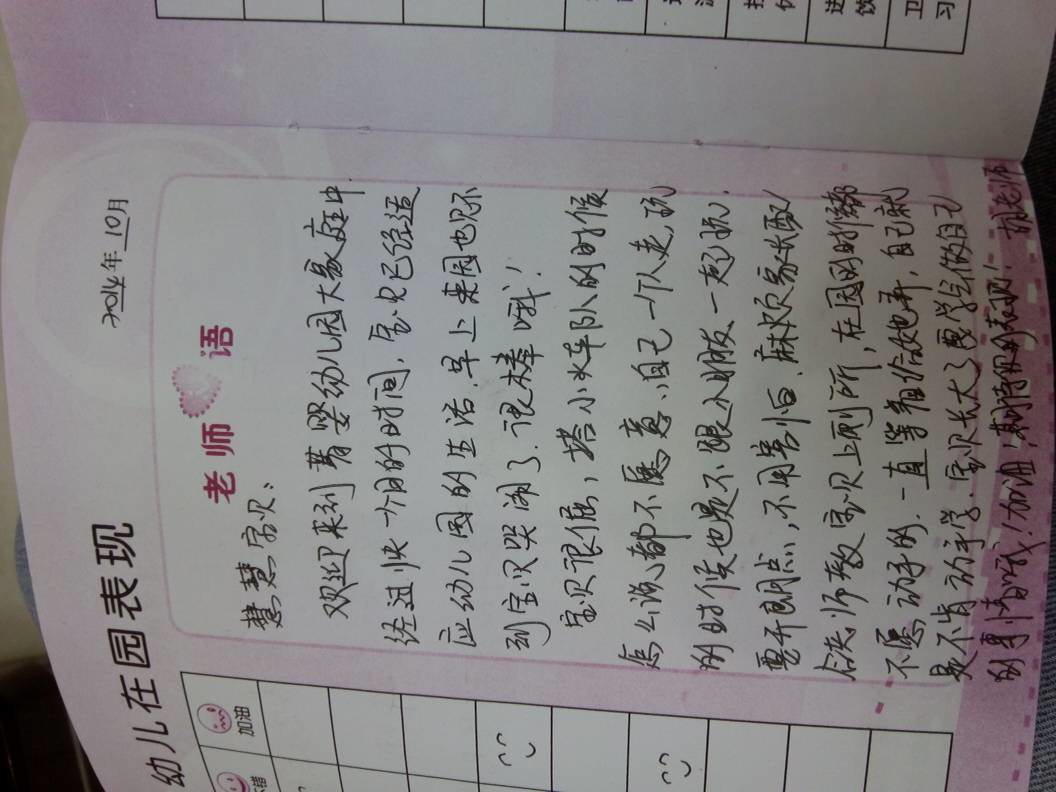 幼儿在园表现
2014年10月
老师语
慧慧宝贝：
欢迎来到蓓婴幼儿园大家庭中
经过快一个月的时间，宝贝已经适
应幼儿园的生活，早上来园也见不
到宝贝哭闹了，很棒哦！
宝贝很倔，搭小火车队的时候
怎么说都不愿意，自己一个人走，玩
的时候也是不跟小朋友一起玩，
要开朗点，不用害怕，麻烦家长配
合老师教宝贝上厕所，在园的时候都
不愿动手的，一直等着给她弄，自己就
是不肯动手学，宝贝长大了要学会做自己
的事情哦！加油！期待你的表现！
胡老师
加油